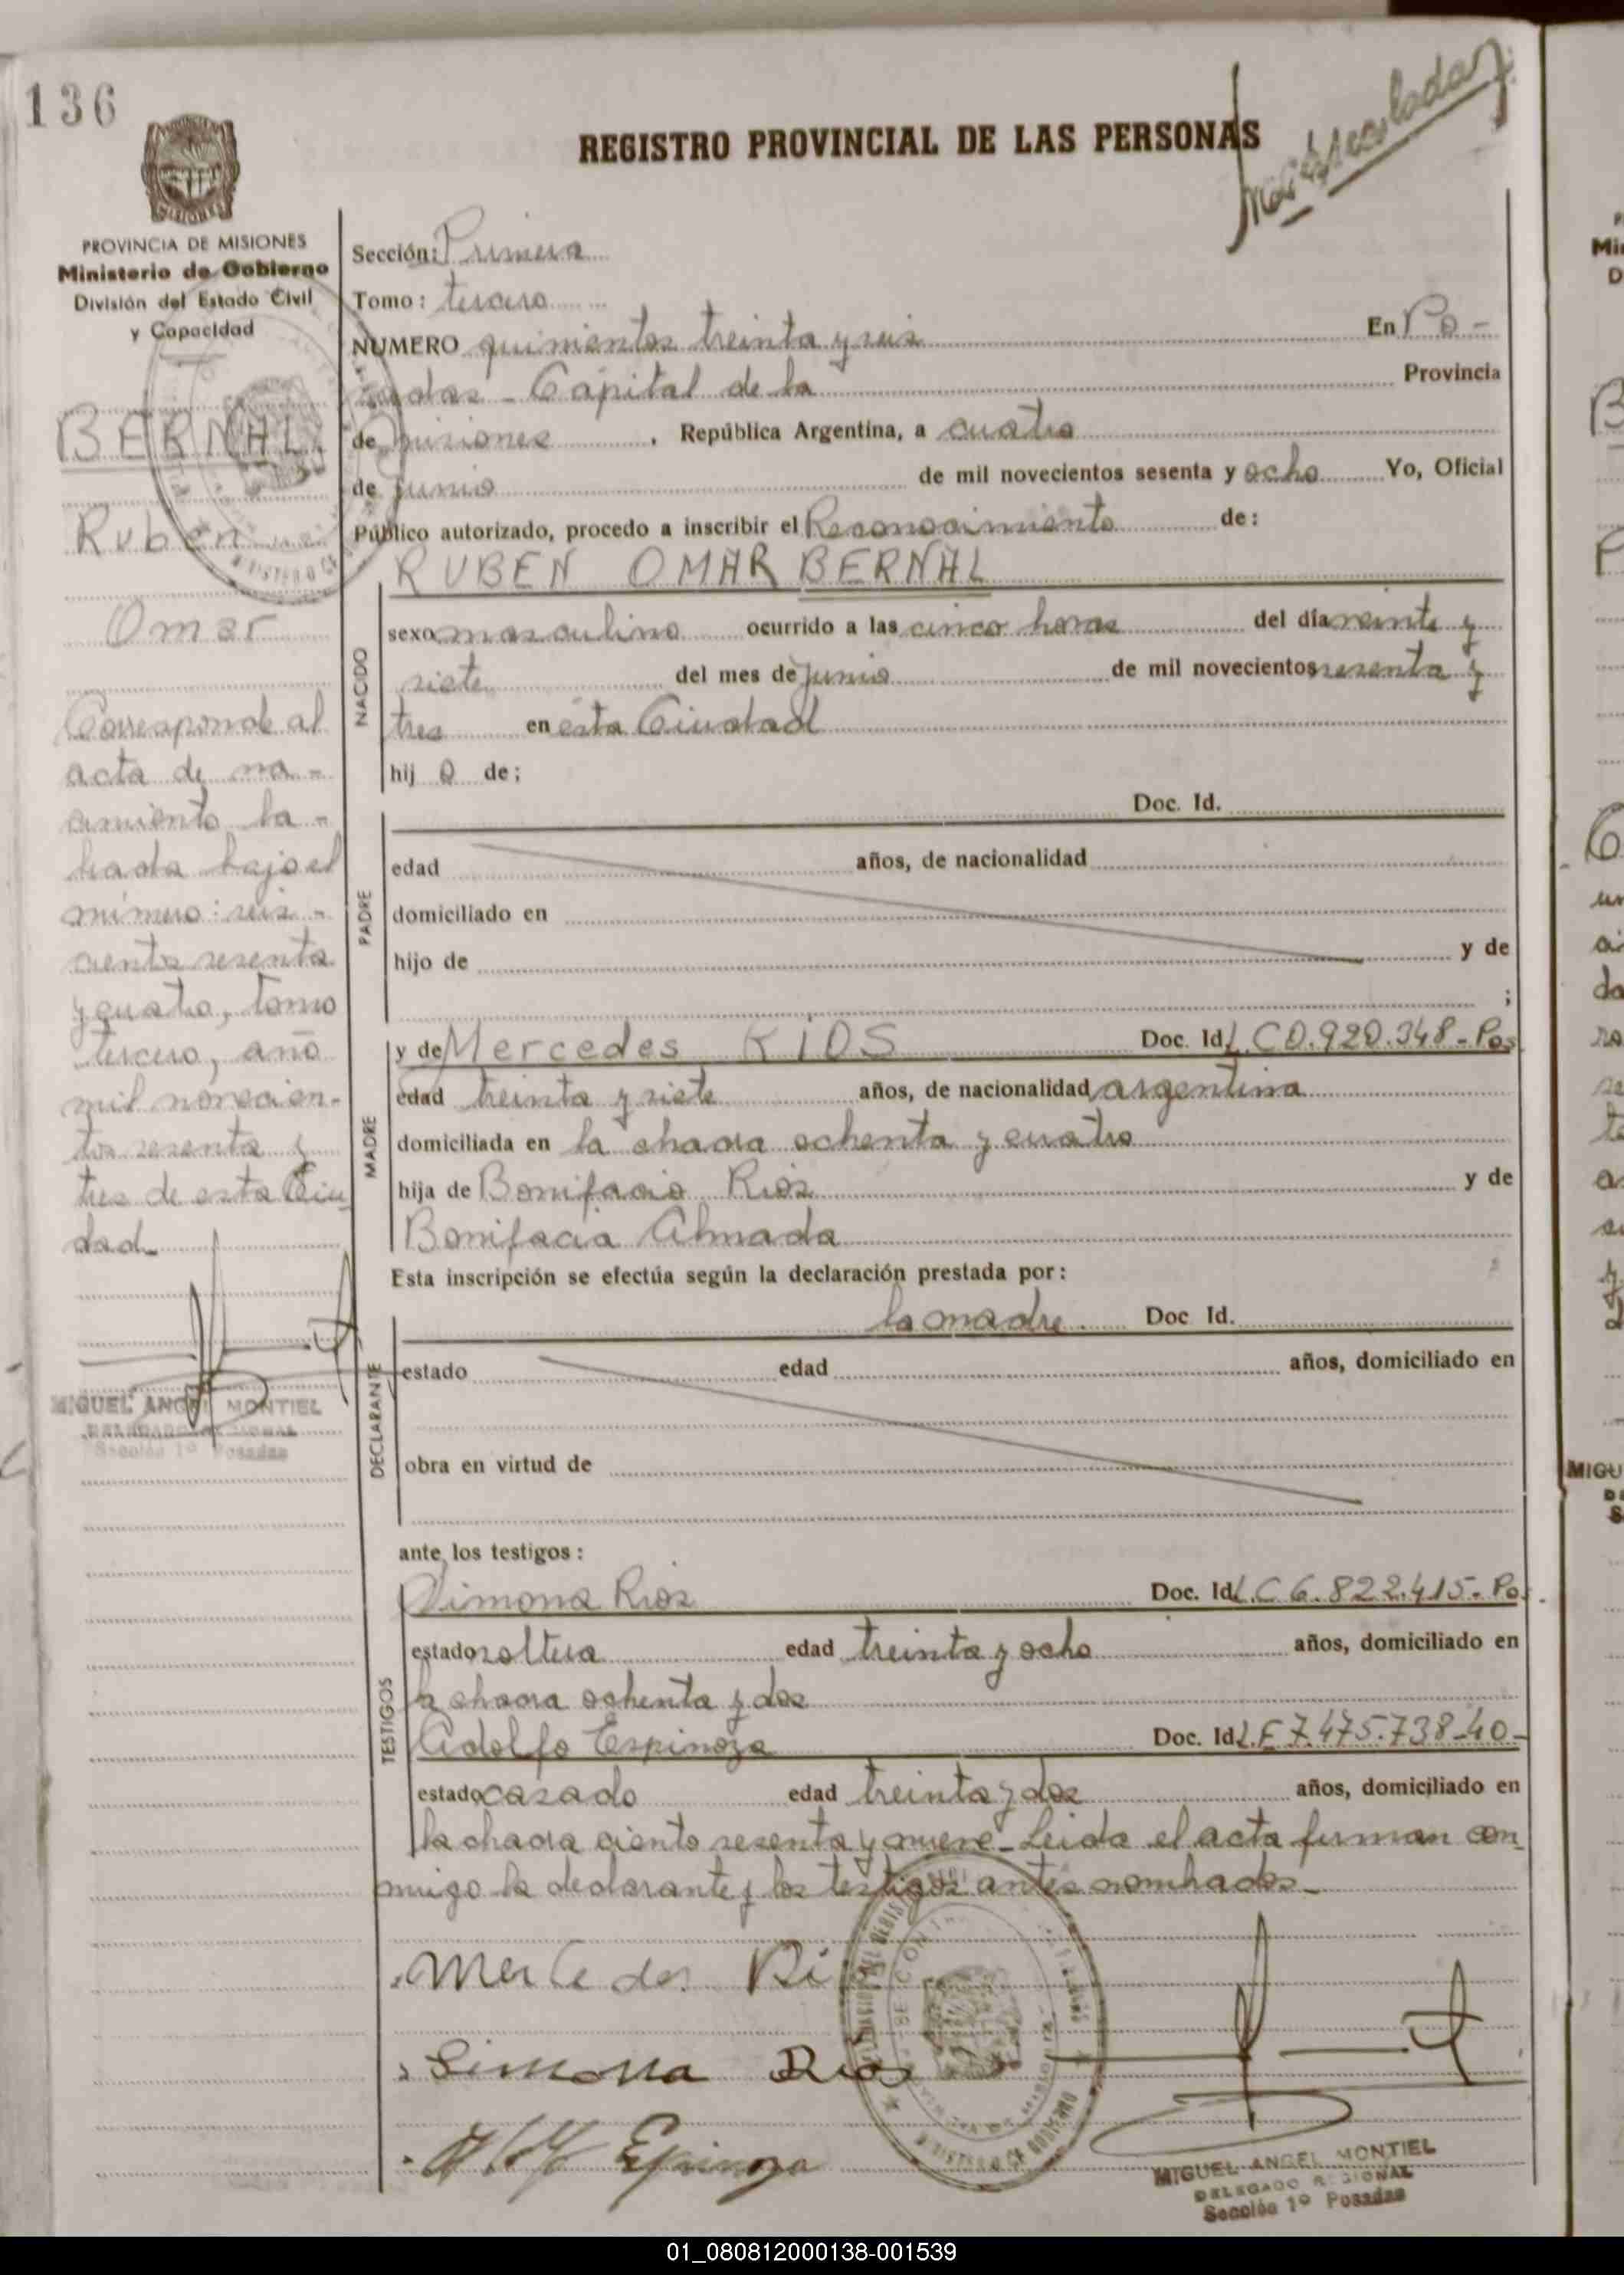 136
REGISTRO PROVINCIAL DE LAS PERSONAS
PROVINCIA DE MISIONES
Ministerio de Gobierno
División del Estado Civil
y Capacidad
BERNAL
Ruben
Omar
Corresponde al
acta de na-
cimiento la-
brada bajo el
número: seis-
cientos sesenta
y cuatro, tomo
tercero, año
mil novecien-
tos sesenta y
tres de esta Ciu
dad.
MIGUEL ANGEL MONTIEL
DELEGADO REGIONAL
Sección 1º Posadas
Sección: Primera
Tomo: tercero
NUMERO quinientos treinta y seis En Po-
sadas - Capital de la Provincia
de Misiones, República Argentina, a cuatro
de junio de mil novecientos sesenta y ocho Yo, Oficial
Público autorizado, procedo a inscribir el Reconocimiento de:
RUBEN OMAR BERNAL
NACIDO
sexo masculino ocurrido a las cinco horas del día veinte y
siete del mes de junio de mil novecientos sesenta y
tres en ésta Ciudad
hij o de;
PADRE
Doc. Id.
edad años, de nacionalidad
domiciliado en
hijo de y de
;
MADRE
y de Mercedes RIOS Doc. Id. L.C 0.920.348-Pos
edad treinta y siete años, de nacionalidad argentina
domiciliada en la chacra ochenta y cuatro
hija de Bonifacio Rios y de
Bonifacia Almada
Esta inscripción se efectúa según la declaración prestada por:
DECLARANTE
la madre. Doc Id.
estado edad años, domiciliado en
obra en virtud de
ante los testigos:
TESTIGOS
Simona Rios Doc. Id. L.C 6.822.415-Pos.
estado soltera edad treinta y ocho años, domiciliado en
la chacra ochenta y dos
Adolfo Espinoza Doc. Id. L.E 7.475.738-40-
estado casado edad treinta y dos años, domiciliado en
la chacra ciento sesenta y nueve - Leida el acta firman con
migo la declarante y los testigos antes nombrados -
Mercedes Ri
Simona Rios
Espinoza
MIGUEL ANGEL MONTIEL
DELEGADO REGIONAL
Sección 1º Posadas
01_080812000138-001539